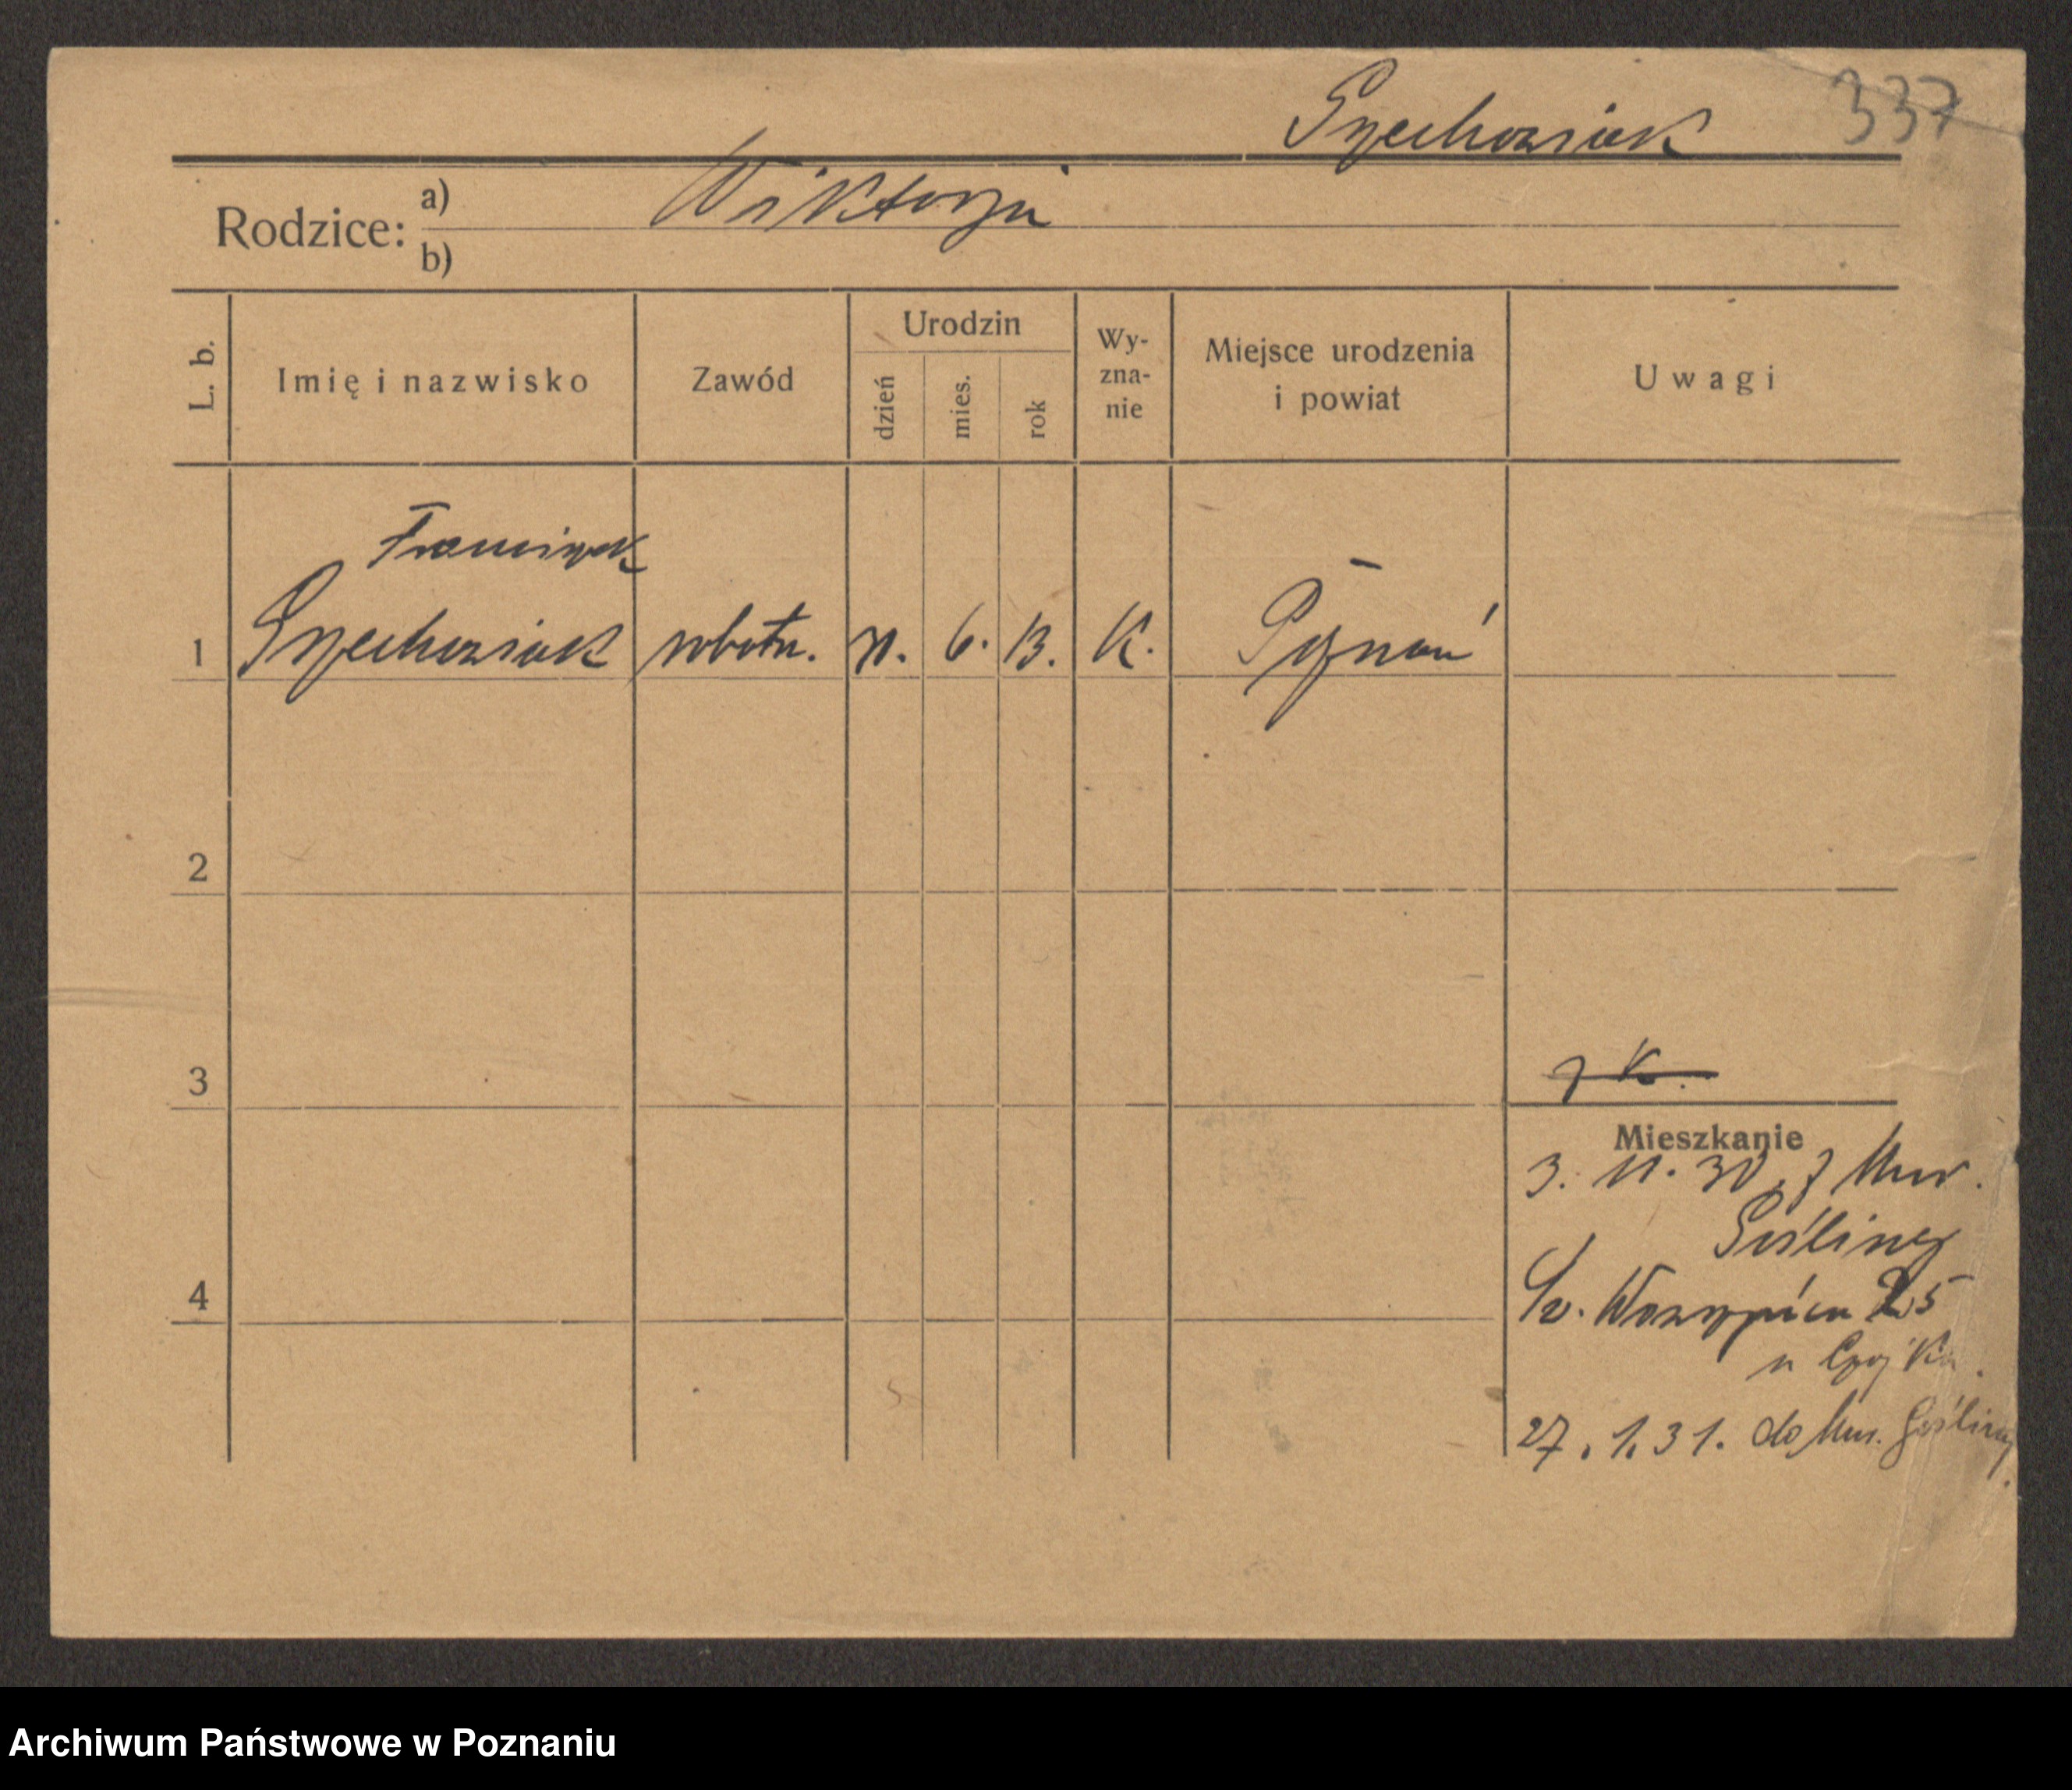 337
Grzechowiak
Rodzice:
a) Wiktorja
b)
L. b.
Imię i nazwisko
Zawód
Urodzin
dzień
mies.
rok
Wy-
zna-
nie
Miejsce urodzenia
i powiat
Uwagi
Franciszek
1 Grzechowiak robotn. 11. 6. 13. K. Poznań
2
3
ż K.
Mieszkanie
3. 11. 30. z Mur.
Gośliny
Św. Wawrzyńca 25
u Czojka
4
27. 1. 31. do Mur. Gośliny
Archiwum Państwowe w Poznaniu